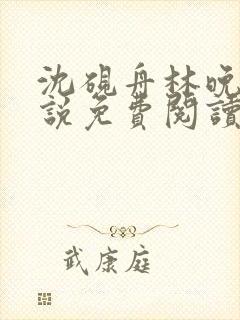 沈硯舟林晚
說免費閱讀
武康庭